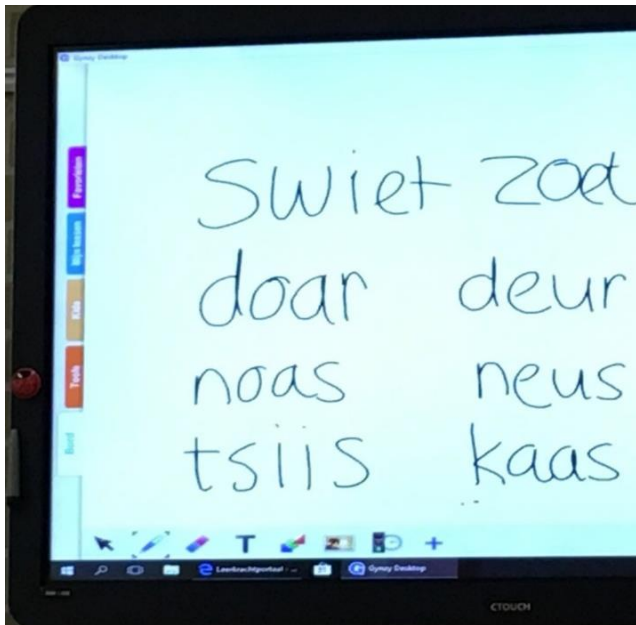 Gynzy Desktop
Favorieten
Mijn lessen
Kids
Tools
Bord
swiet zoet
doar deur
noas neus
tsiis kaas
T
Leerkrachtportaal - ...
Gynzy Desktop
CTOUCH